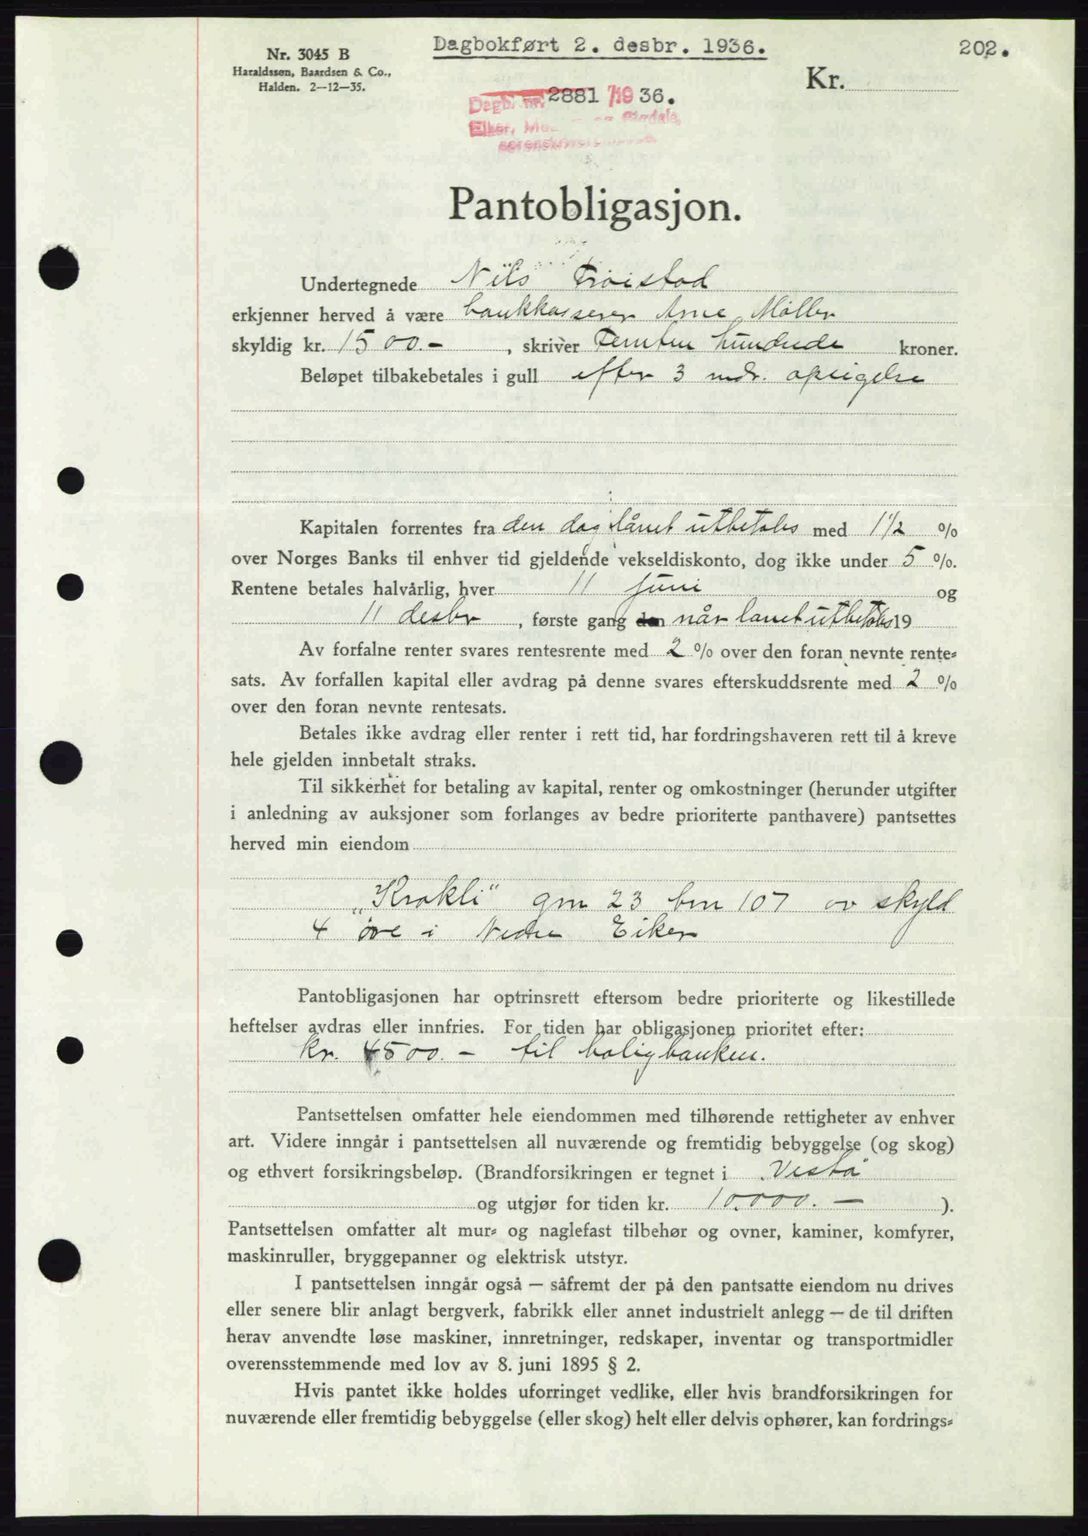 Dagbokført 2. desbr. 1936.
202.
Nr. 3045 B
Haraldssøn, Baardsen & Co.,
Halden. 2—12—35.
Kr.
Dagb. nr. 2881 /1936.
Eiker,
sorenskriverembede
Pantobligasjon.
Undertegnede Nils Frøistad
erkjenner herved å være bankkasserer Arne Møller
skyldig kr. 1500.- , skriver Femten hundrede kroner.
Beløpet tilbakebetales i gull efter 3 mdr. opsigelse
Kapitalen forrentes fra den dag lånet utbetales med 1 1/2 %
over Norges Banks til enhver tid gjeldende vekseldiskonto, dog ikke under 5 %.
Rentene betales halvårlig, hver 11 juni og
11 desbr , første gang den når lånet utbetales 19
Av forfalne renter svares rentesrente med 2 % over den foran nevnte rente-
sats. Av forfallen kapital eller avdrag på denne svares efterskuddsrente med 2 %
over den foran nevnte rentesats.
Betales ikke avdrag eller renter i rett tid, har fordringshaveren rett til å kreve
hele gjelden innbetalt straks.
Til sikkerhet for betaling av kapital, renter og omkostninger (herunder utgifter
i anledning av auksjoner som forlanges av bedre prioriterte panthavere) pantsettes
herved min eiendom
"Krokli" gnr 23 bnr 107 av skyld
4 øre i Nedre Eiker
Pantobligasjonen har optrinsrett eftersom bedre prioriterte og likestillede
heftelser avdras eller innfries. For tiden har obligasjonen prioritet efter:
kr. 4500.- til boligbanken.
Pantsettelsen omfatter hele eiendommen med tilhørende rettigheter av enhver
art. Videre inngår i pantsettelsen all nuværende og fremtidig bebyggelse (og skog)
og ethvert forsikringsbeløp. (Brandforsikringen er tegnet i "Vesta"
og utgjør for tiden kr. 10.000.— ).
Pantsettelsen omfatter alt mur- og naglefast tilbehør og ovner, kaminer, komfyrer,
maskinruller, bryggepanner og elektrisk utstyr.
I pantsettelsen inngår også — såfremt der på den pantsatte eiendom nu drives
eller senere blir anlagt bergverk, fabrikk eller annet industrielt anlegg — de til driften
herav anvendte løse maskiner, innretninger, redskaper, inventar og transportmidler
overensstemmende med lov av 8. juni 1895 § 2.
Hvis pantet ikke holdes uforringet vedlike, eller hvis brandforsikringen for
nuværende eller fremtidig bebyggelse (eller skog) helt eller delvis ophører, kan fordrings-